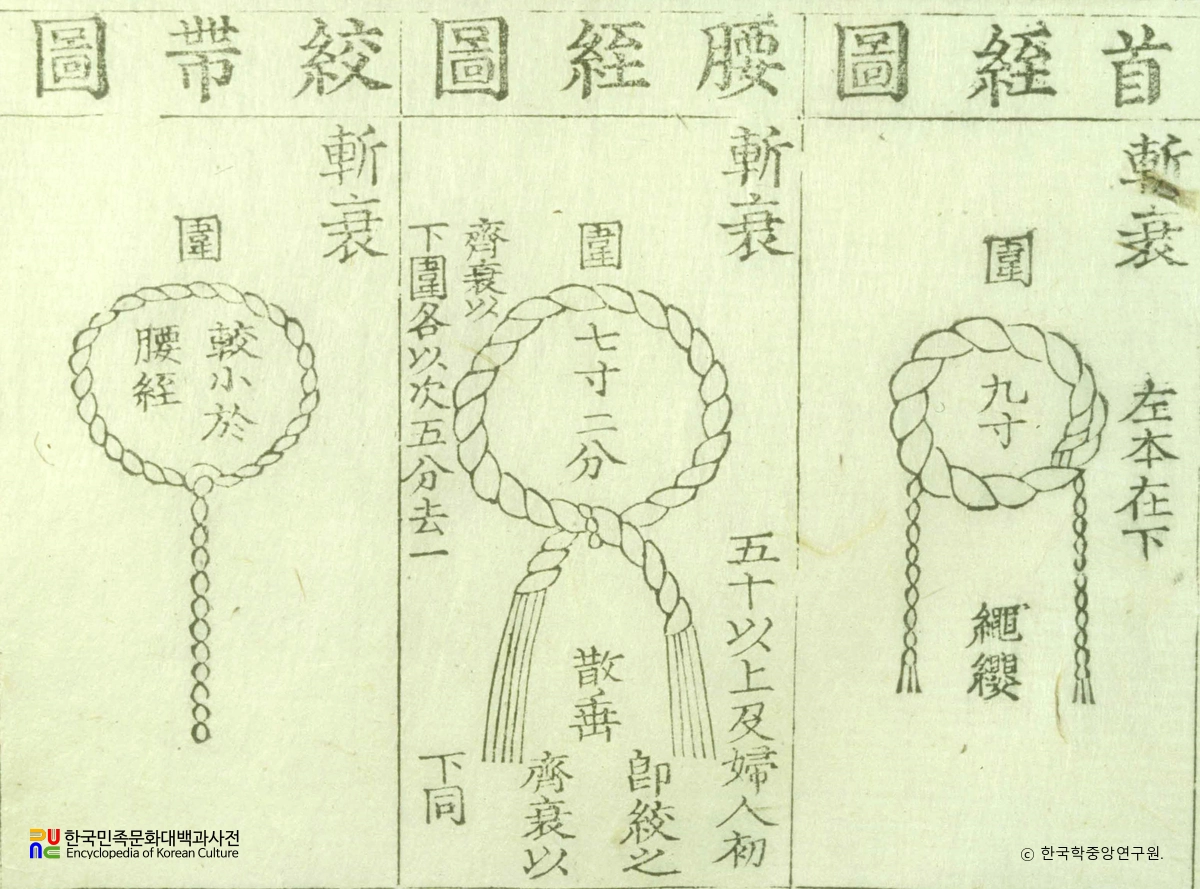 首絰圖
斬衰
圍
九寸
左本在下
繩纓
腰絰圖
斬衰
圍
七寸二分
五十以上及婦人初
卽絞之
散垂
齊衰以
下同
齊衰以
下圍各以次五分去一
絞帶圖
斬衰
圍
較小於
腰絰
한국민족문화대백과사전
Encyclopedia of Korean Culture
ⓒ 한국학중앙연구원.